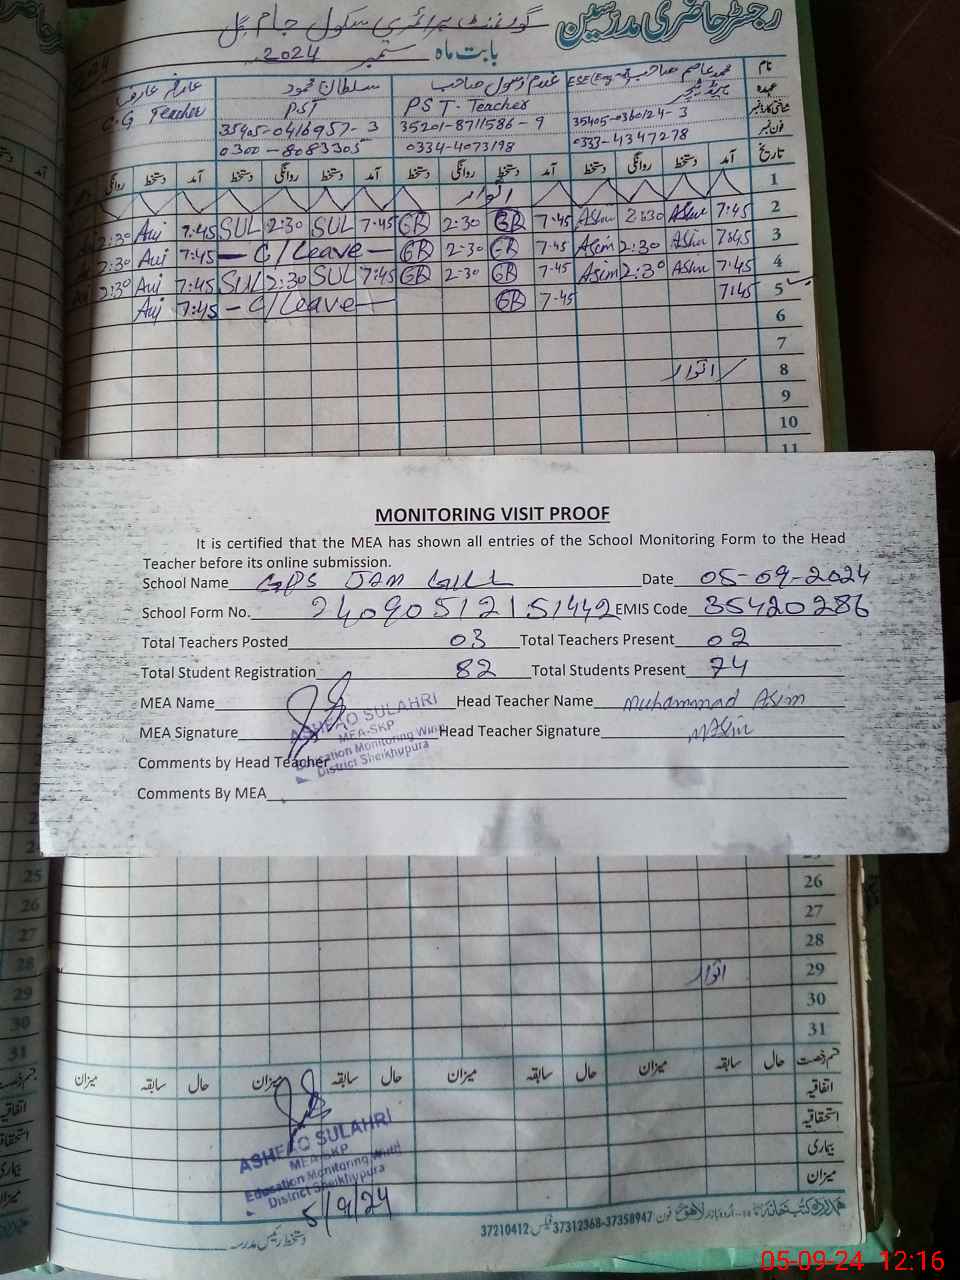 رجسٹر حاضری مدرسین
گورنمنٹ پرائمری سکول جام گل
بابت ماہ ستمبر 2024
نام محمد عاصم صاحب ESE(Eng) غلام رسول صاحب سلطان محمود
عہدہ ہیڈ ٹیچر PST-Teacher PST C.G Teacher
شناختی کارڈ نمبر 35405-0360124-3 35201-8711586-9 35405-0416957-3
فون نمبر 0333-4347278 0334-4073198 0300-8083305
تاریخ آمد دستخط روانگی دستخط آمد دستخط روانگی دستخط آمد دستخط روانگی دستخط آمد دستخط روانگی
1 اتوار
2 7:45 Ashu 2:30 Ashu 7:45 GR 2:30 GR 7:45 SUL 2:30 SUL 7:45 Auj 2:30
3 7:45 Ashu 2:30 Asim 7:45 GR 2:30 GR — C/Leave — 7:45 Auj 2:30
4 7:45 Ashu 2:30 Asim 7:45 GR 2:30 GR 7:45 SUL 2:30 SUL 7:45 Auj 2:30
5 7:45 7:45 GR — C/Leave — 7:45 Auj
6
7
8 اتوار
9
10
11
MONITORING VISIT PROOF
It is certified that the MEA has shown all entries of the School Monitoring Form to the Head
Teacher before its online submission.
School Name GPS JAM GILL Date 05-09-2024
School Form No. 24090512151442 EMIS Code 35420286
Total Teachers Posted 03 Total Teachers Present 02
Total Student Registration 82 Total Students Present 74
MEA Name Head Teacher Name Muhammad Asim
MEA Signature Head Teacher Signature MAsim
ASHFAQ SULAHRI
MEA-SKP
Education Monitoring Wing
District Sheikhupura
Comments by Head Teacher
Comments By MEA
25
26
27
28
29 اتوار
30
31
قسم رخصت حال سابقہ میزان حال سابقہ میزان حال سابقہ میزان حال سابقہ میزان
اتفاقیہ
استحقاقیہ
بیماری
میزان
ASHFAQ SULAHRI
MEA-SKP
Education Monitoring Wing
District Sheikhupura
5/9/24
دستخط رئیس مدرسہ
اردو بازار لاہور فون 37312368-37358947 فیکس 37210412
05-09-24 12:16